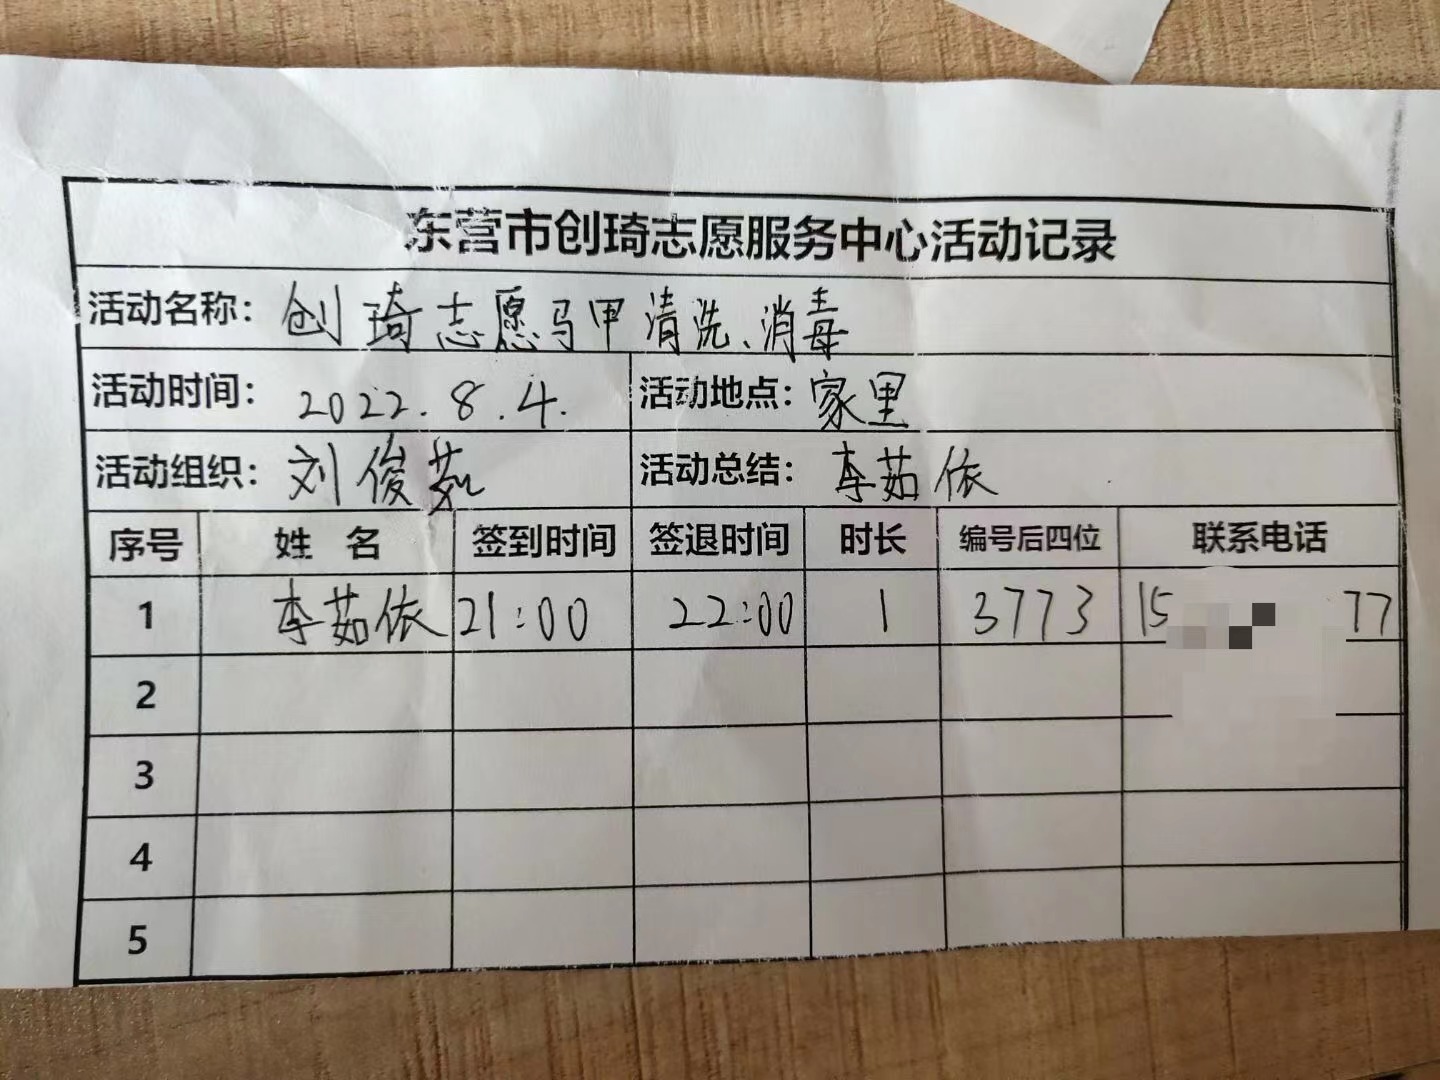 东营市创琦志愿服务中心活动记录
活动名称：创琦志愿马甲清洗、消毒
活动时间：2022.8.4. 活动地点：家里
活动组织：刘俊茹 活动总结：李茹依
序号 姓名 签到时间 签退时间 时长 编号后四位 联系电话
1 李茹依 21:00 22:00 1 3773 15 77
2
3
4
5